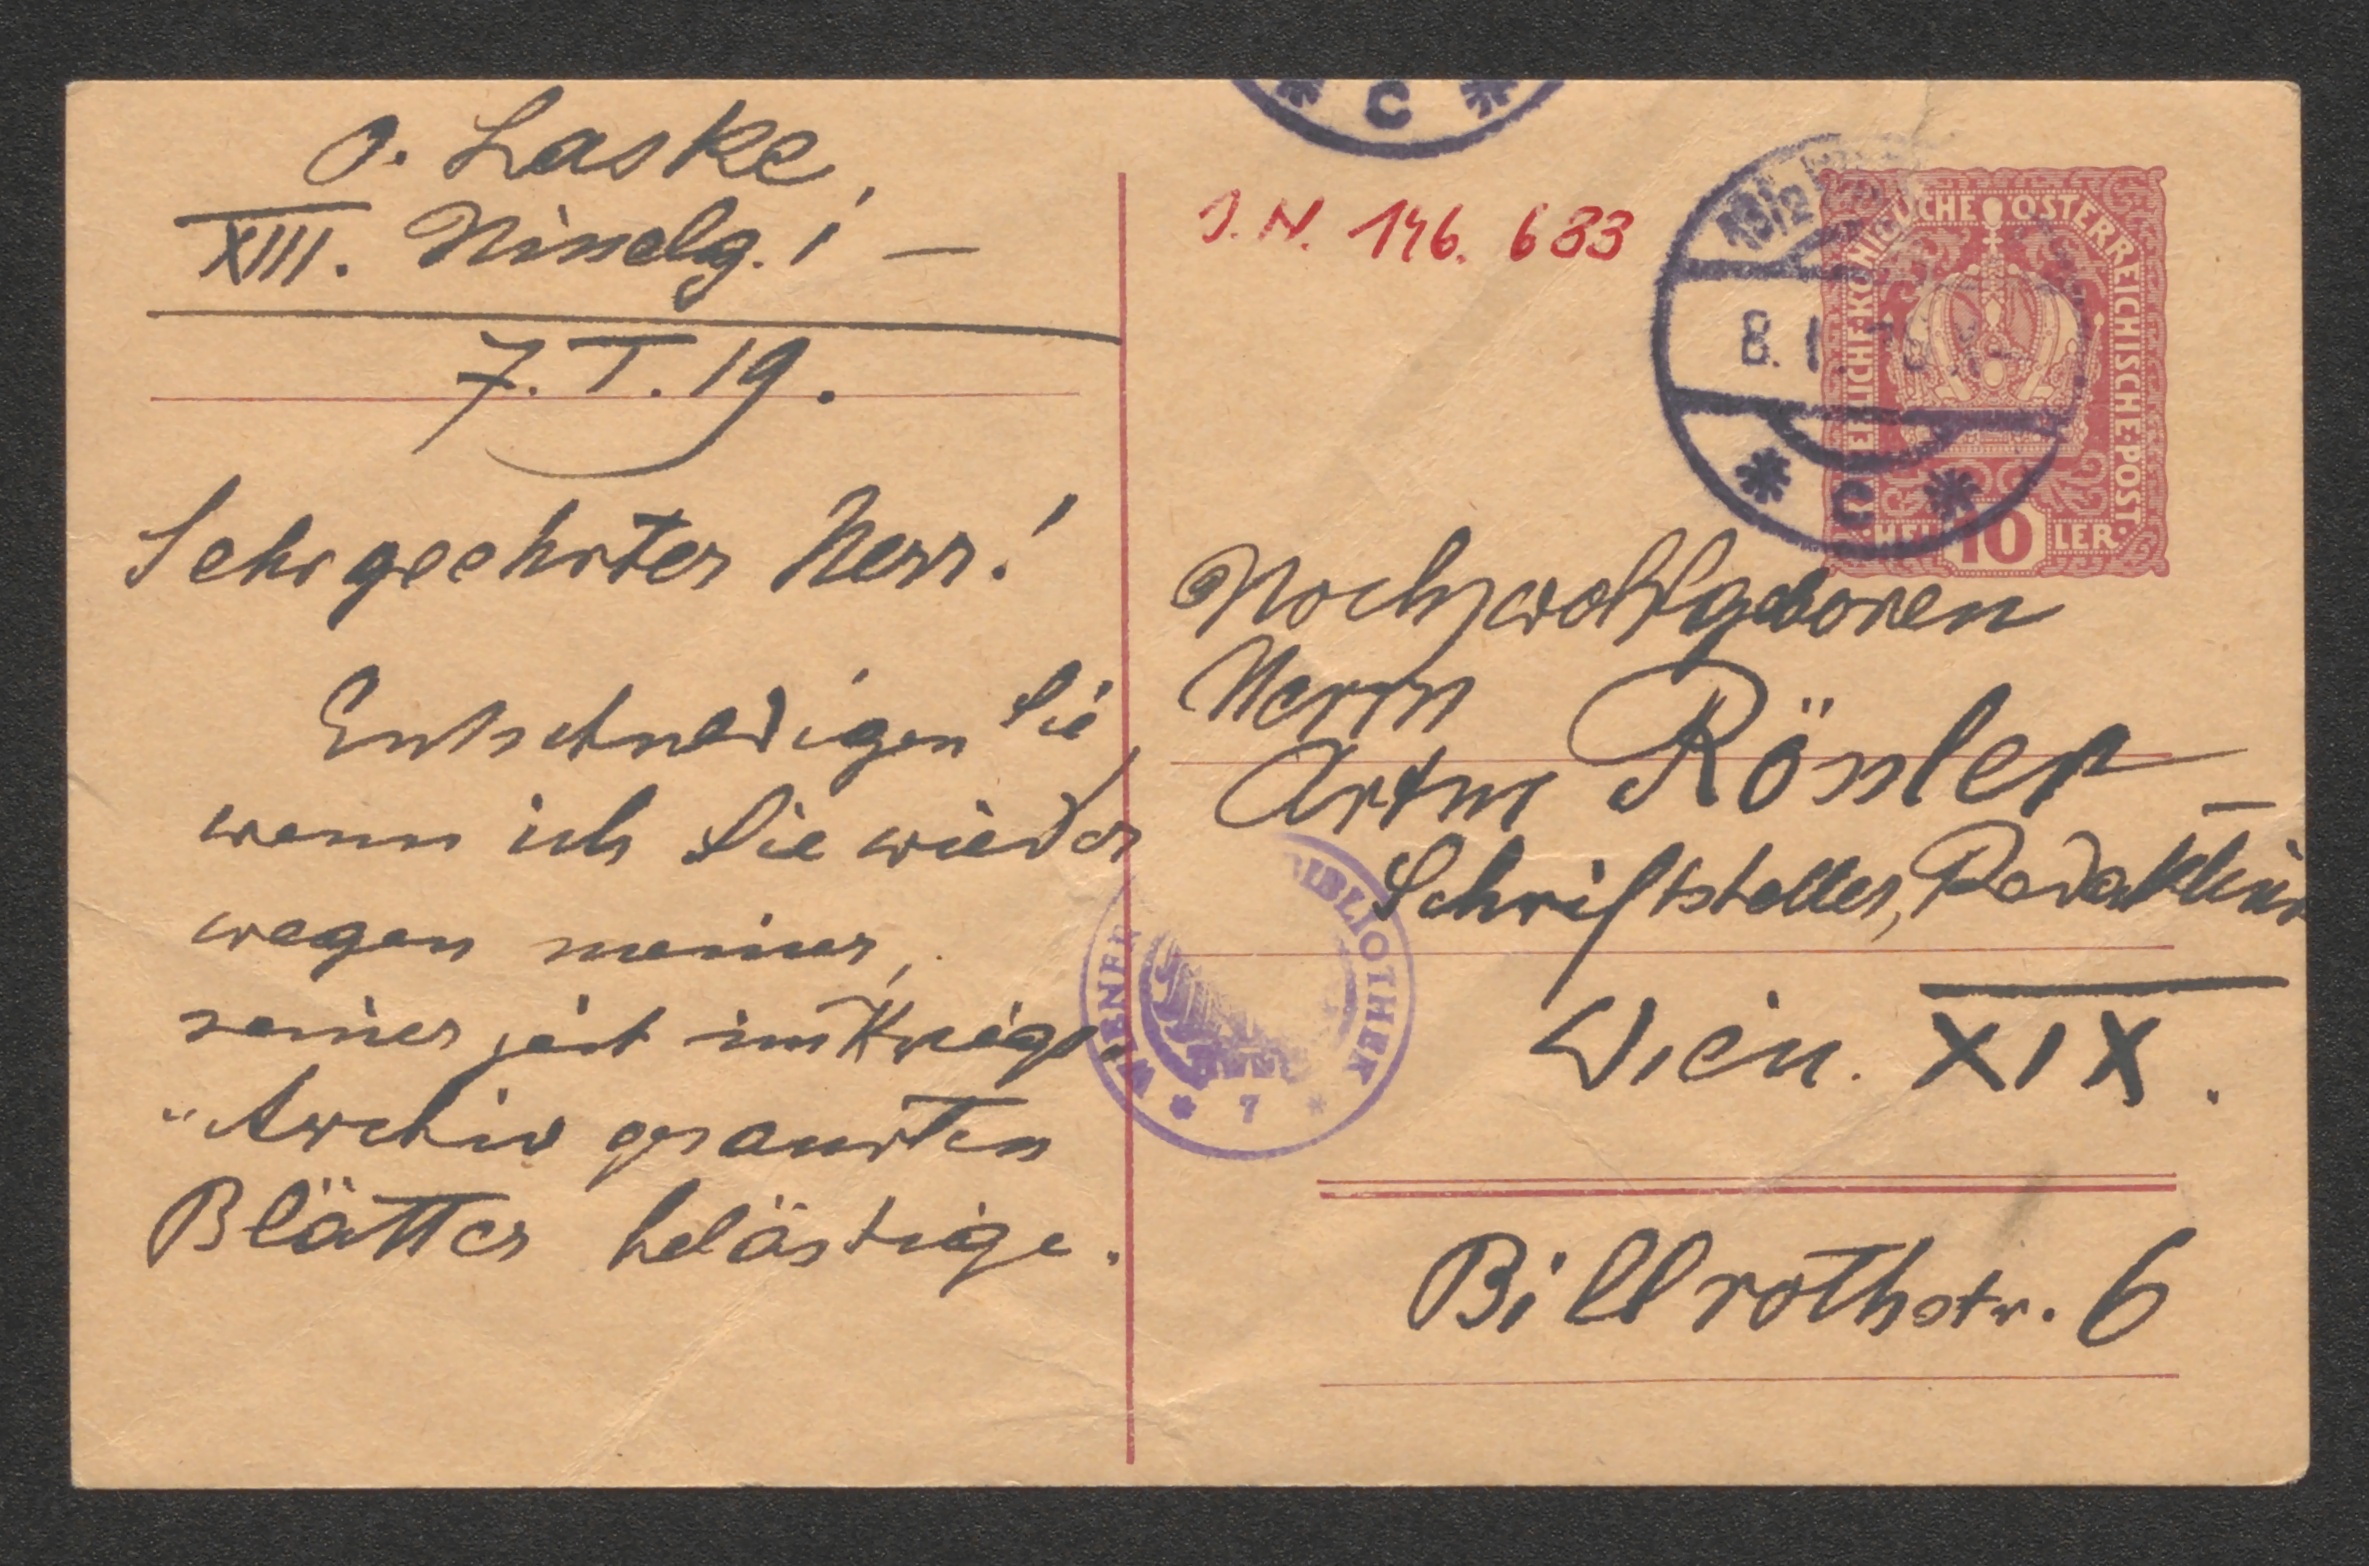 O. Laske,
XIII. Nisselg. 1 —
7. I. 19.
Sehr geehrter Herr!
Entschuldigen Sie,
wenn ich Sie wieder
wegen meiner,
seiner zeit im Kriegs
"Archiv gesandten
Blätter belästige.
C
J. N. 146. 633
8. I.
C
KÖNIGLICHE ÖSTERREICHISCHE POST
HELLER
10
Hochwohlgeboren
Herrn
Artur Rössler —
Schriftsteller, Redakteur
Wien. XIX.
Billrothstr. 6
WIENER BIBLIOTHEK
* 7 *